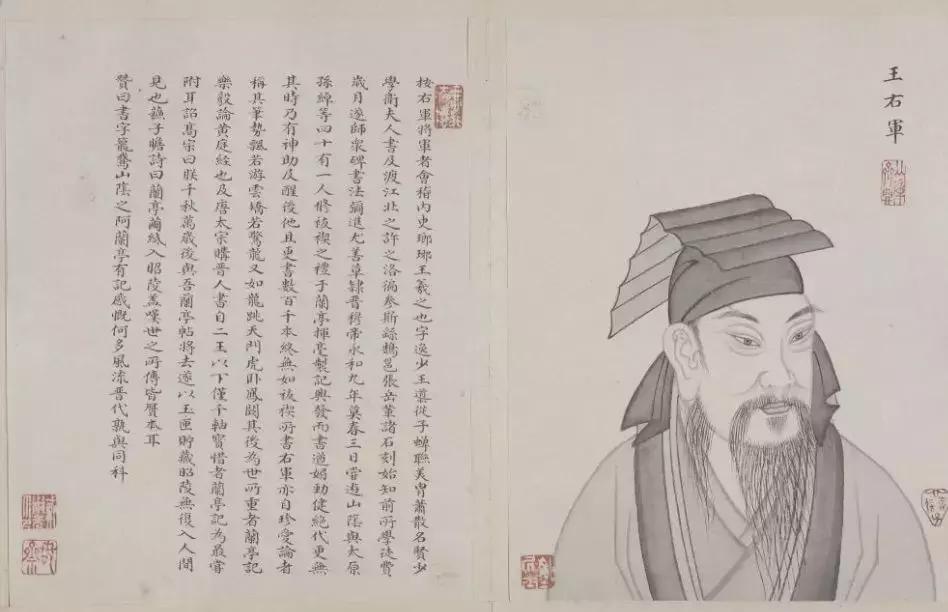 王右軍
按右軍將軍者會稽內史瑯琊王羲之也字逸少王導從子蟬聯美胄蕭散名賢少
學衛夫人書及渡江北之許之洛徧參斯繇鵠邕張岳華諸石刻始知前所學徒費
歲月遂師衆碑書法彌進尤善草隸晉穆帝永和九年莫春三日嘗遊山陰與太原
孫綽等四十有一人修袚禊之禮于蘭亭揮毫製記興發而書遒媚勁健絕代更無
其時乃有神助及醒後他日更書數百千本終無如袚禊所書右軍亦自珍愛論者
稱其筆勢飄若游雲矯若驚龍又如龍跳天門虎卧鳳閣其後為世所重者蘭亭記
樂毅論黃庭經也及唐太宗購晉人書自二王以下僅千軸寶惜者蘭亭記為最嘗
附耳詔高宗曰朕千秋萬歲後與吾蘭亭帖將去遂以玉匣貯藏昭陵無復入人間
見也蘇子瞻詩曰蘭亭繭紙入昭陵蓋嘆世之所傳皆贋本耳
贊曰書字籠鵞山陰之阿蘭亭有記感慨何多風流晉代孰與同科